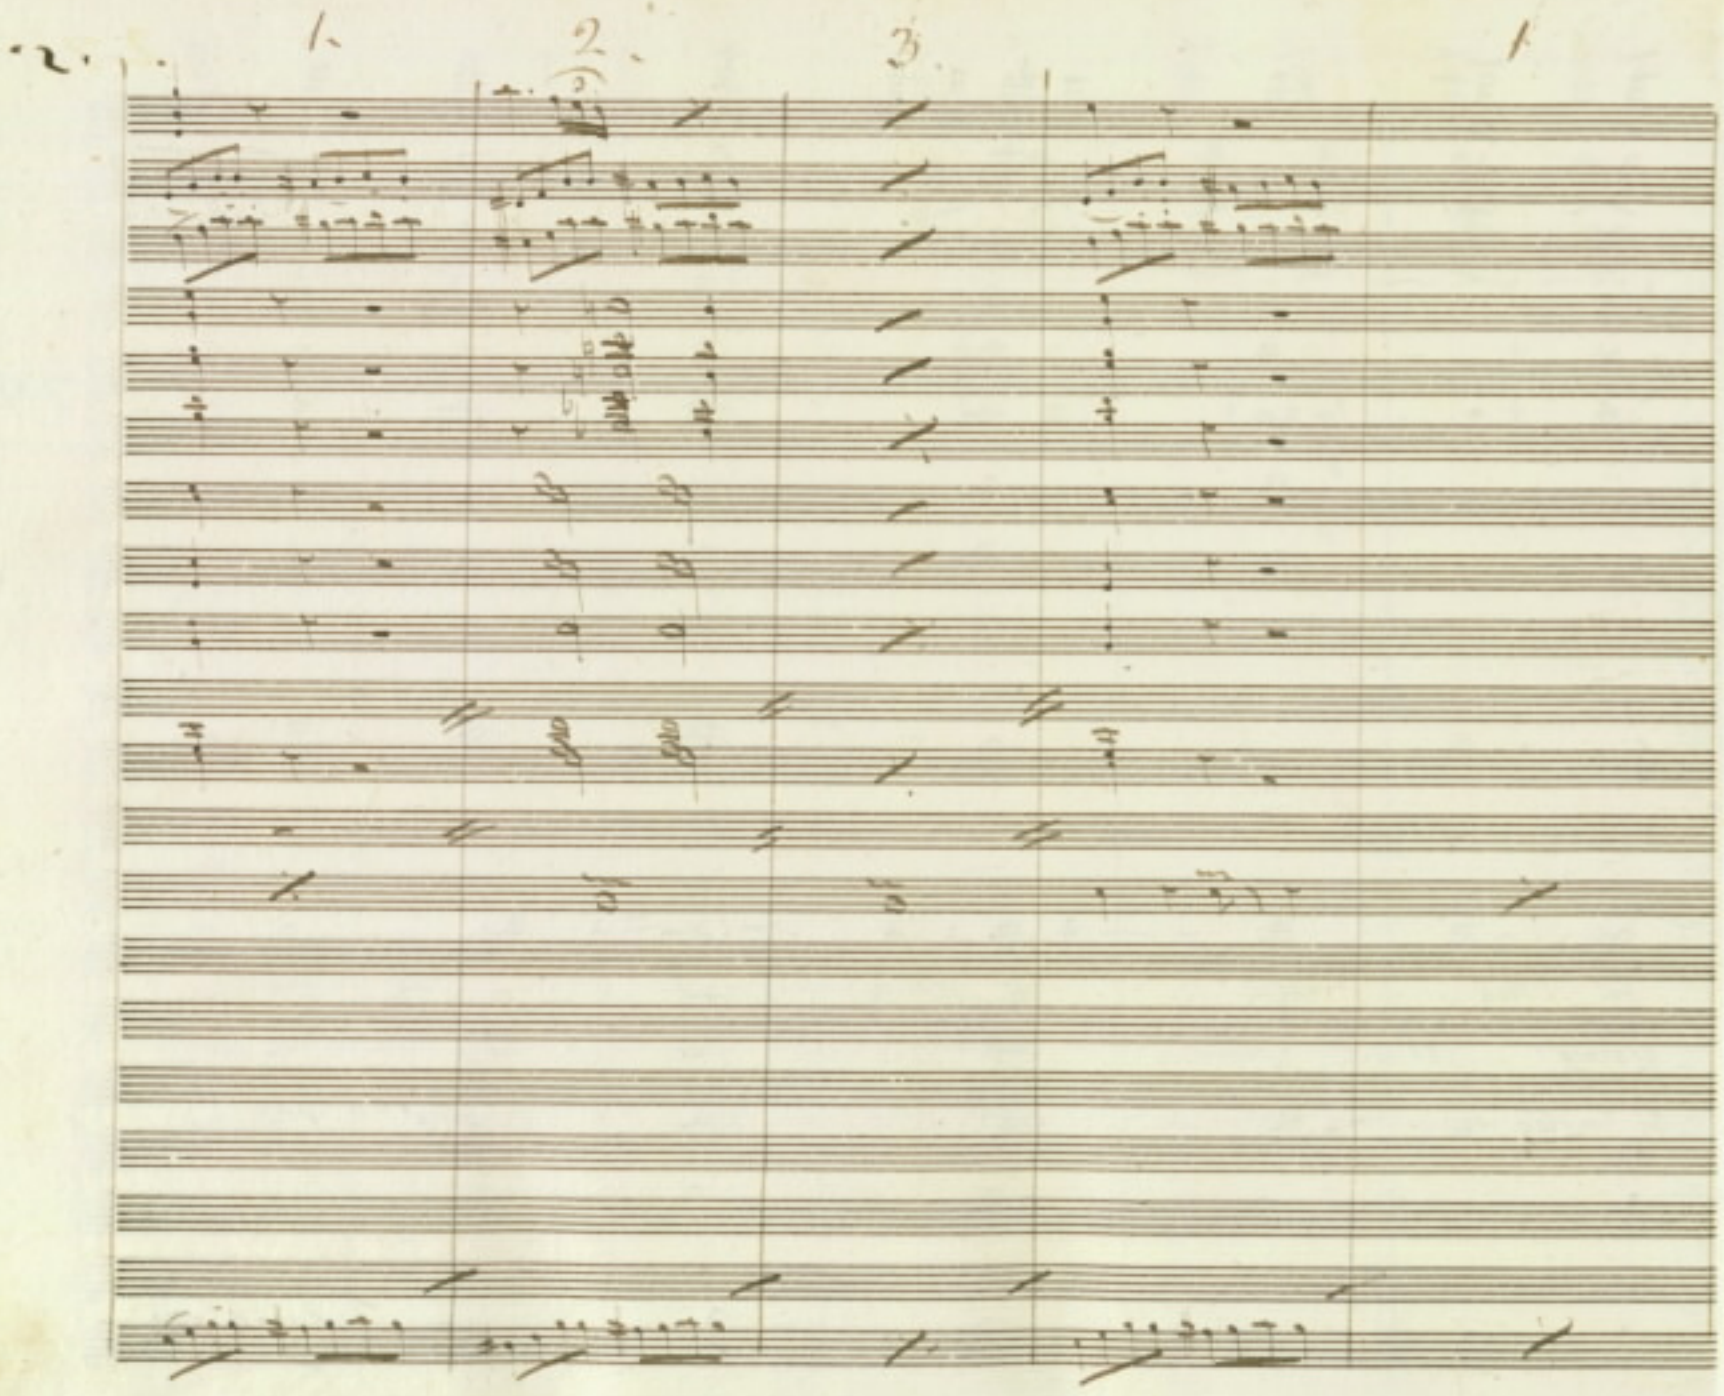 1. 2. 3. 1
3